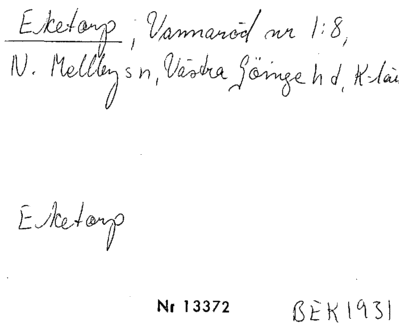 Eketorp, Vannaröd nr 1:8,
N. Mellby sn, Västra Göinge hd, K-län
Eketorp
Nr 13372 BEK1931